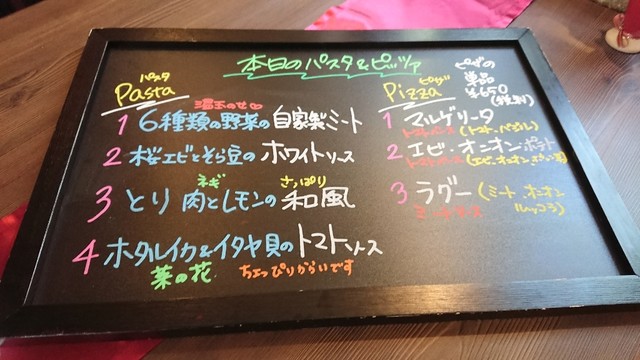 本日のパスタ&ピッツァ
パスタ
Pasta
温玉のせ♡
1 6種類の野菜の自家製ミート
2 桜エビとそら豆のホワイトソース
ネギ さっぱり
3 とり肉とレモンの和風
4 ホタルイカ&イタヤ貝のトマトソース
菜の花 ちょっぴりからいです
ピザの
単品
¥650
(税別)
ピザ
Pizza
1 マルゲリータ
トマトソース (トマト、バジル)
2 エビ・オニオン・ポテト
トマトソース (エビ、オニオン
3 ラグー (ミート、オニオン
ミートソース ルッコラ)